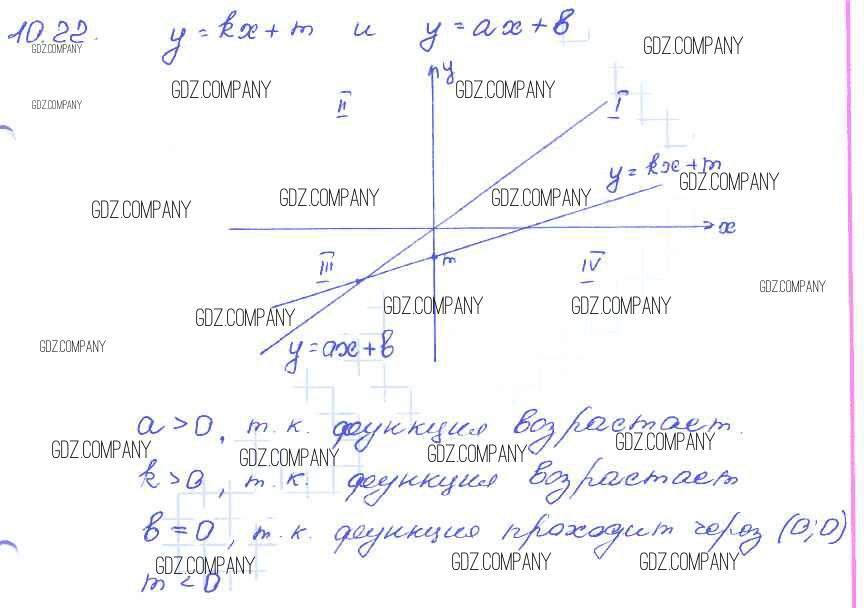 10.22. y = kx + m и y = ax + b
GDZ.COMPANY
GDZ.COMPANY
y
GDZ.COMPANY
GDZ.COMPANY
GDZ.COMPANY
II
I
y = kx + m
GDZ.COMPANY
GDZ.COMPANY
GDZ.COMPANY
GDZ.COMPANY
x
III
m
IV
GDZ.COMPANY
GDZ.COMPANY
GDZ.COMPANY
GDZ.COMPANY
GDZ.COMPANY
GDZ.COMPANY
y = ax + b
a > 0, т.к. функция возрастает.
GDZ.COMPANY
GDZ.COMPANY
GDZ.COMPANY
GDZ.COMPANY
k > 0, т.к. функция возрастает
b = 0, т.к. функция проходит через (0; 0)
GDZ.COMPANY
GDZ.COMPANY
GDZ.COMPANY
m < 0